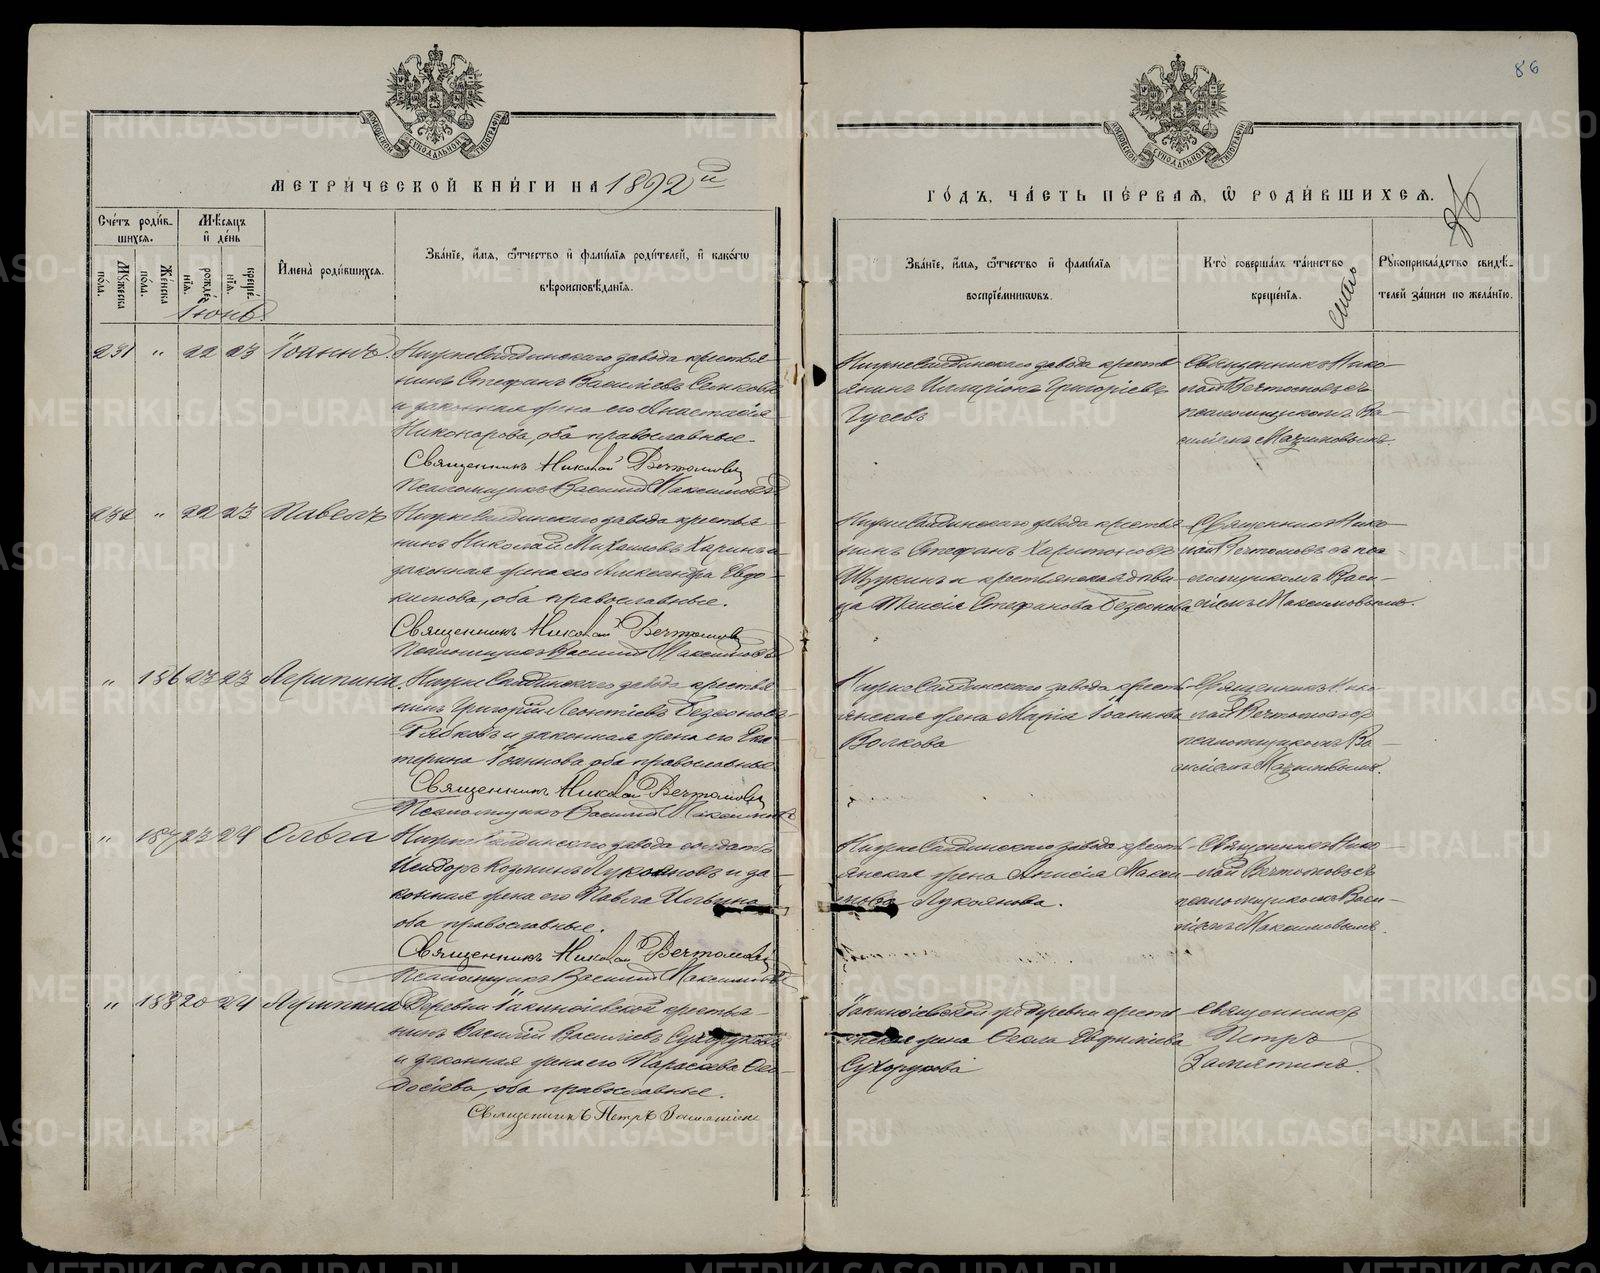 86
МОСКОВСКОЙ СѴНОДАЛЬНОЙ ТИПОГРАФІИ
МОСКОВСКОЙ СѴНОДАЛЬНОЙ ТИПОГРАФІИ
МЕТРИ́ЧЕСКОЙ КНИ́ГИ НА 1892й
ГО́ДЪ, ЧА́СТЬ ПЕ́РВАЯ, Ѡ РОДИ́ВШИХСЯ.
86
Сче́тъ роди́в-
шихся.
Му́жеска
по́ла.
Же́нска
по́ла.
Мѣ́сяцъ
и де́нь
рожде́-
нія.
креще́-
нія.
Имена̀ роди́вшихся.
Зва́ніе, и́мя, ѻ́тчество и фами́лія роди́телей, и како́гѡ
вѣроисповѣ́данія.
Зва́ніе, и́мя, ѻ́тчество и фами́лія
воспріе́мникѡвъ.
Кто̀ соверша́лъ та́инство
креще́нія.
Рꙋкоприкла́дство свидѣ́-
телей за́писи по жела́нію.
Іюнь.
231 " 22 23 Іоаннъ. Нижнесалдинскаго завода крестья-
нинъ Стефанъ Васильевъ
и законная жена его Анастасія
Никонорова, оба православные.
Священникъ Николай Вечтомовъ
Псаломщикъ Василій Максимовъ
Нижнесалдинскаго завода кресть
янинъ Илларіонъ Григоріевъ
Гусевъ
Священникъ Нико-
лай Вечтомовъ съ
псаломщикомъ Ва-
силіемъ
232 " 22 23 Павелъ Нижнесалдинскаго завода крестья
нинъ Николай Михаиловъ Харинъ и
законная жена его Александра Евдо-
кимова, оба православные.
Священникъ Николай Вечтомовъ
Псаломщикъ Василій Максимовъ
Нижнесалдинскаго завода крестья
нинъ Стефанъ Харитоновъ
Щукинъ и крестьянская дѣви-
ца Таисія Стефанова Безсонова
Священникъ Нико-
лай Вечтомовъ съ пса-
ломщикомъ Васи-
ліемъ Максимовымъ.
" 186 23 23 Агрипина. Нижнесалдинскаго завода крестья-
нинъ Григорій Леонтіевъ Безсоновъ-
Рябковъ и законная жена его Ека-
терина Іоаннова, оба православные
Священникъ Николай Вечтомовъ
Псаломщикъ Василій Максимовъ
Нижнесалдинскаго завода кресть-
янская жена Марія Іоаннова
Волкова
Священникъ Нико-
лай Вечтомовъ съ
псаломщикомъ Ва-
силіемъ
" 187 23 24 Ольга Нижнесалдинскаго завода солдатъ
Исидоръ Козминъ Лукояновъ и за-
конная жена его Павла Ильина
оба православные.
Священникъ Николай Вечтомовъ
Псаломщикъ Василій Максимовъ
Нижнесалдинскаго завода кресть-
янская жена Анисія Макси-
мова Лукоянова.
Священникъ Нико-
лай Вечтомовъ съ
псаломщикомъ Васи-
ліемъ Максимовымъ.
" 188 20 24 Агрипина Деревни Іакинѳіевской крестья-
нинъ Василій Васильевъ Сухоруковъ
и законная жена его Параскева Ѳео-
досіева, оба православные.
Священникъ Петръ Замятинъ
Іакинѳіевской деревни кресть-
янская жена Ѳекла Евфиміева
Сухорукова
Священникъ
Петръ
Замятинъ.
METRIKI.GASO-URAL.RU